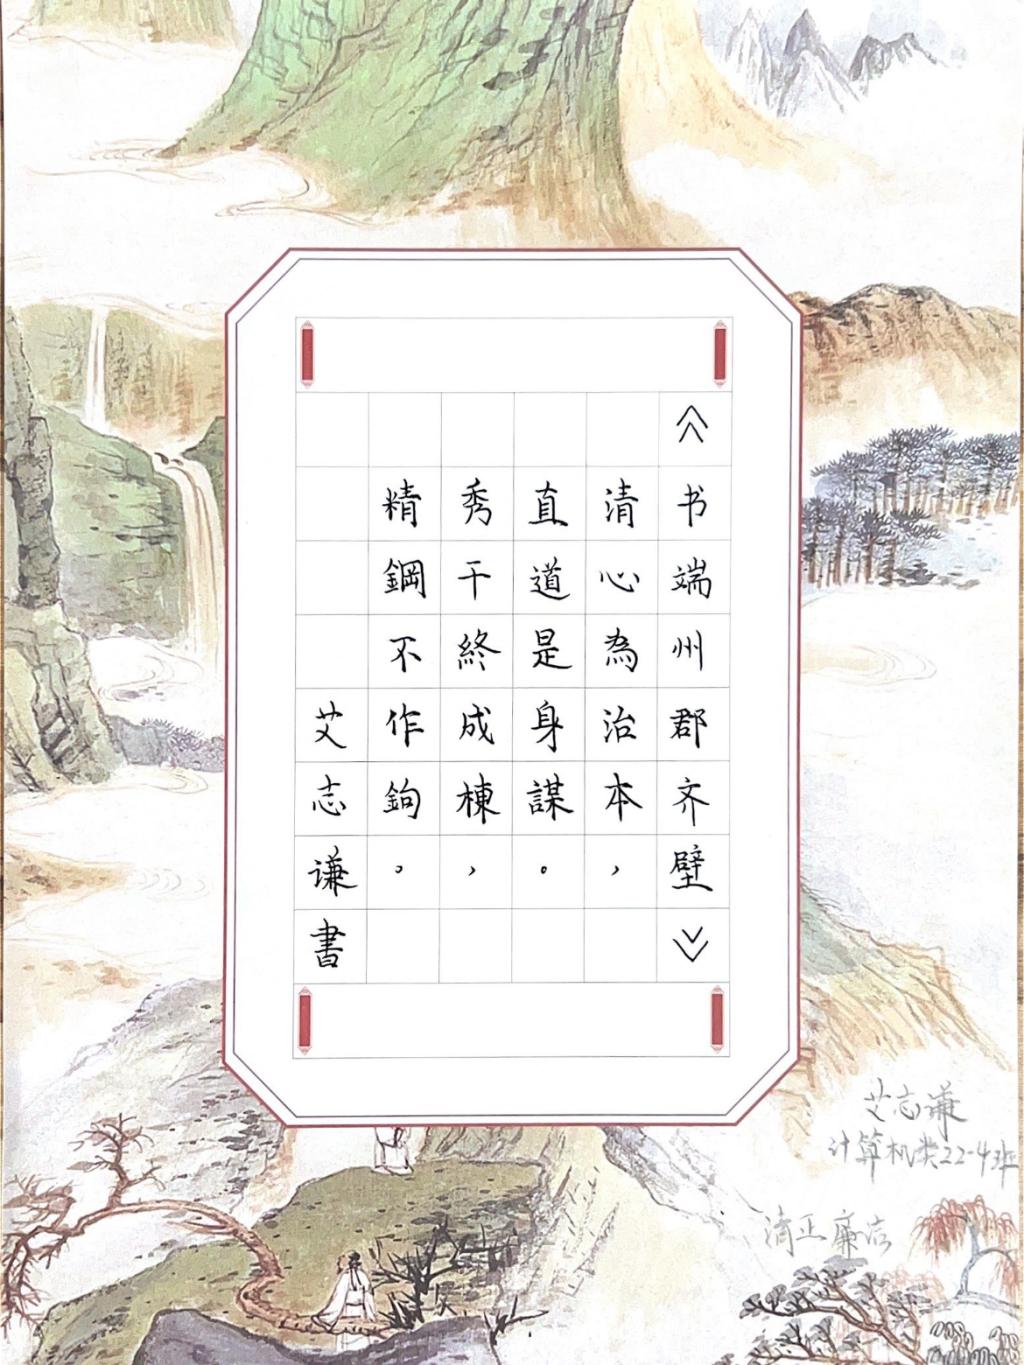 《书端州郡齐壁》
清心為治本，
直道是身謀。
秀干終成棟，
精鋼不作鉤。
艾志谦書
艾志谦
计算机类22-4班
清正廉洁